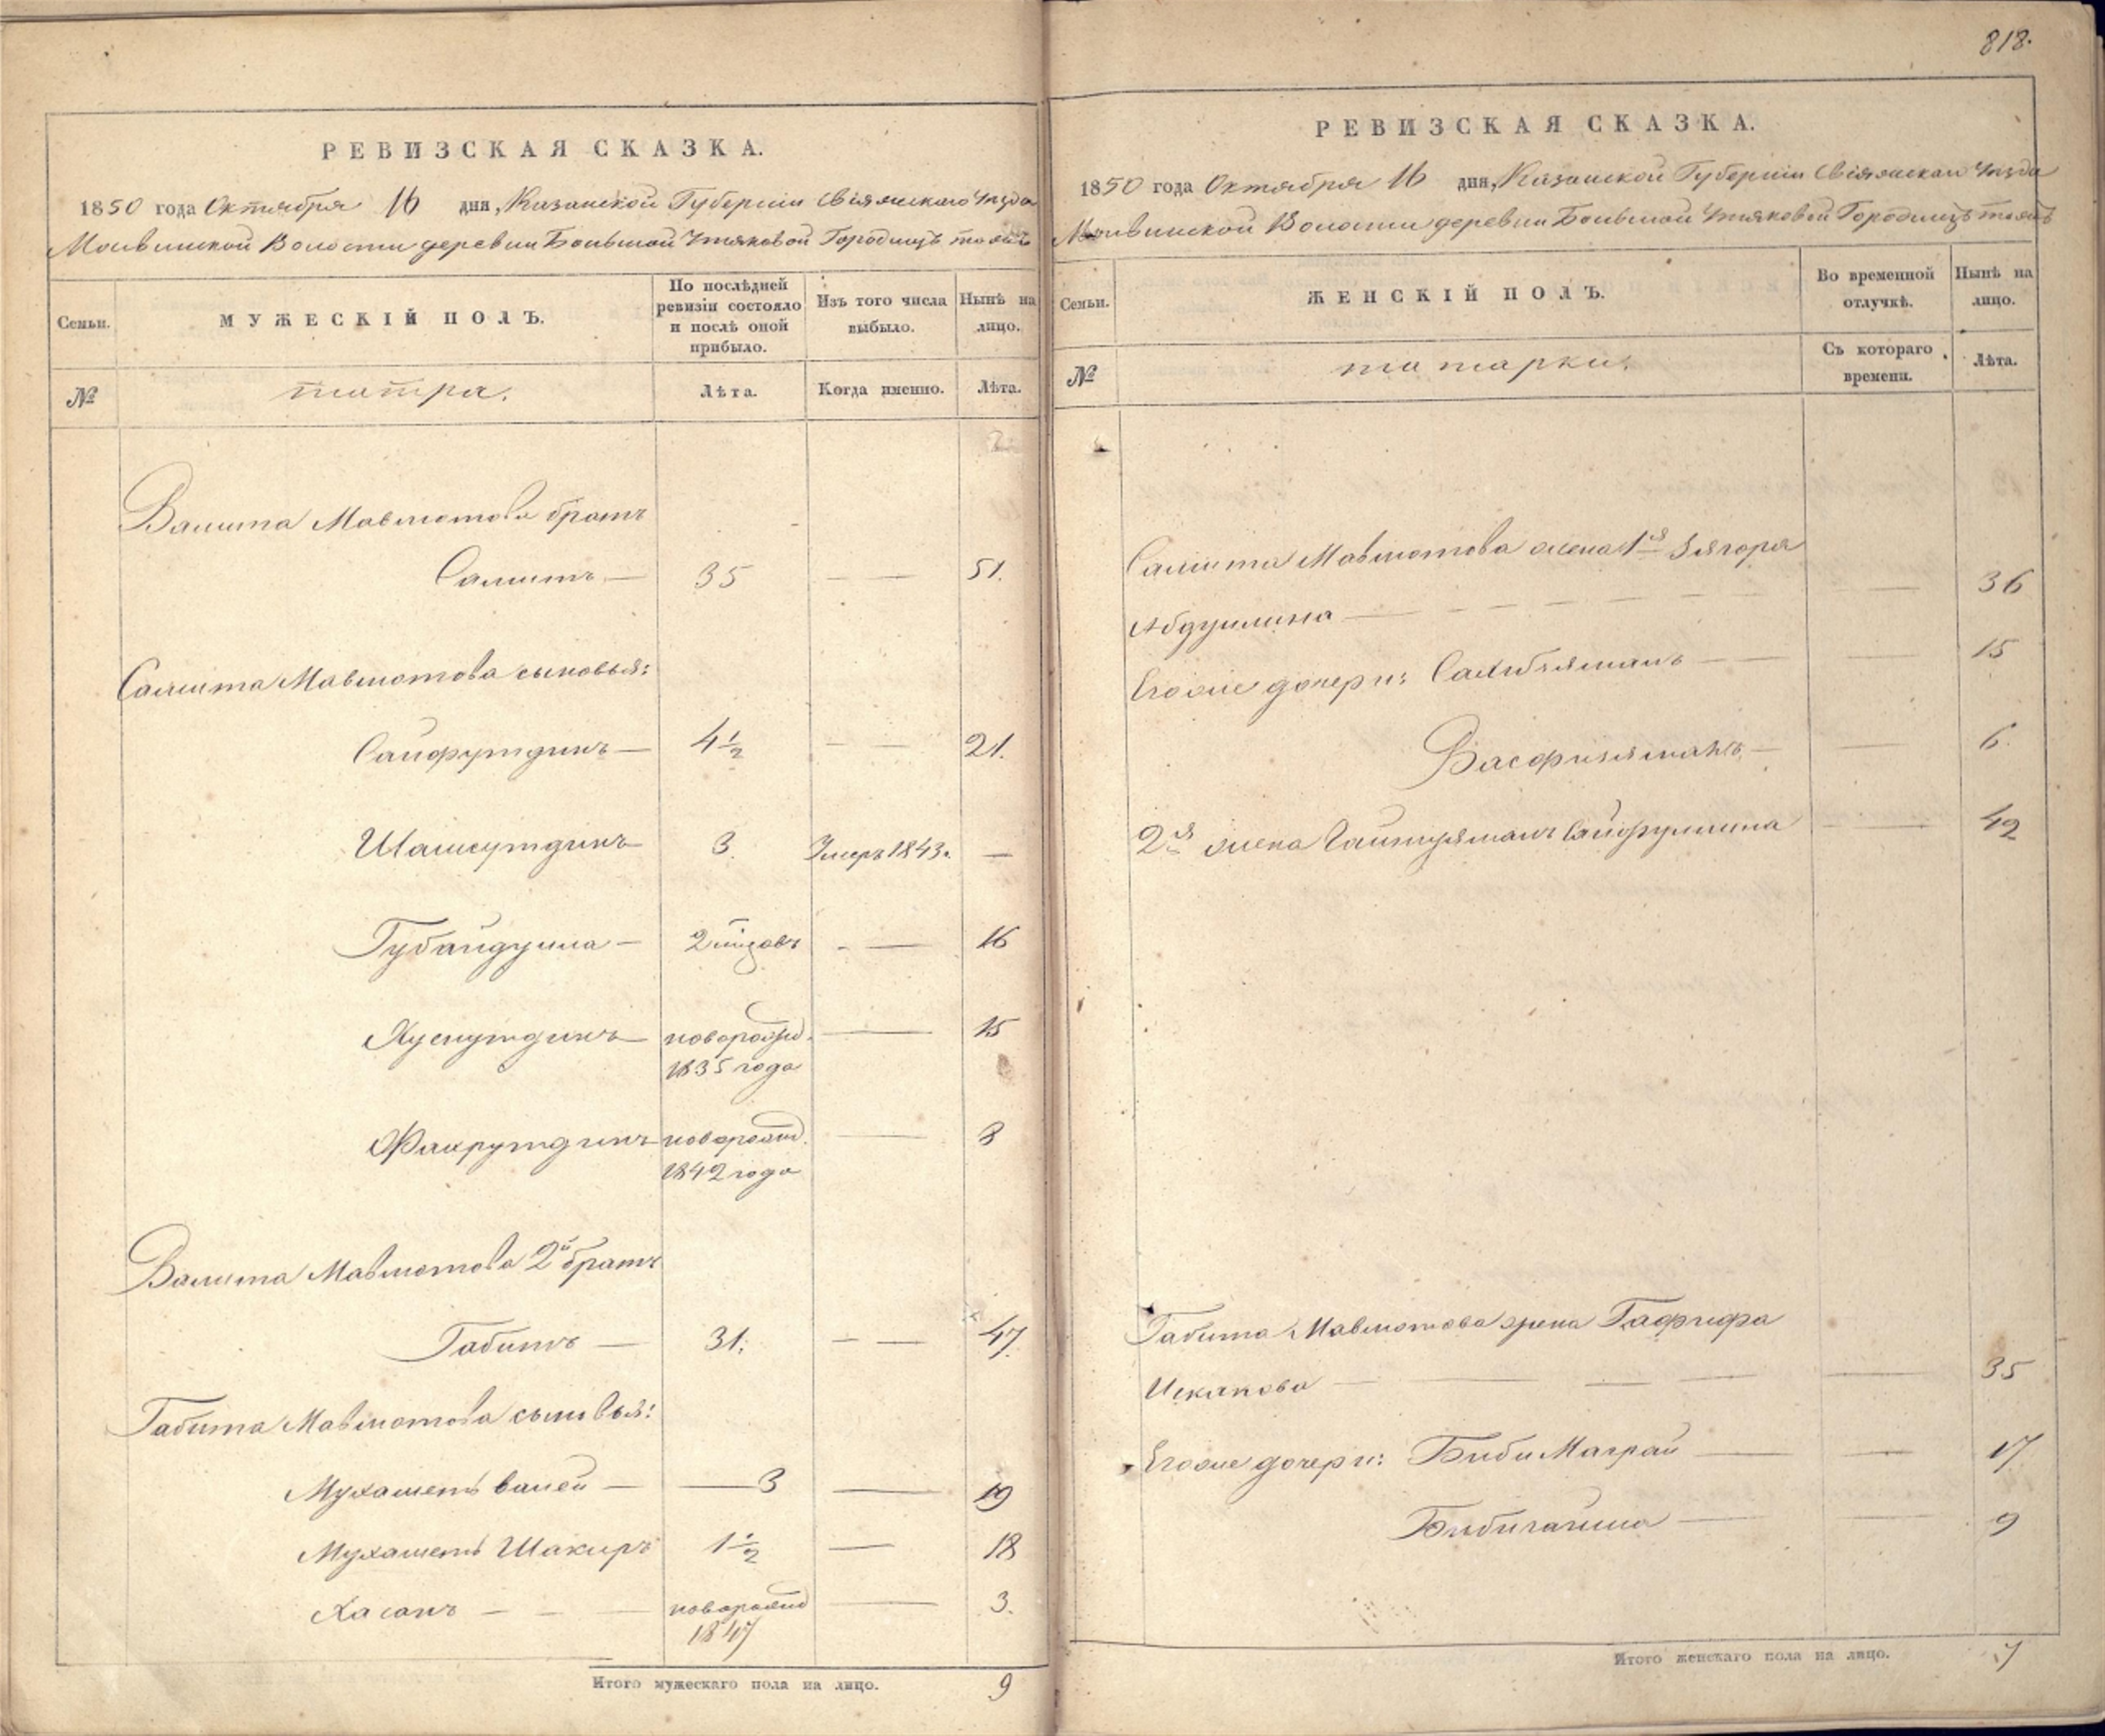 818.
РЕВИЗСКАЯ СКАЗКА.
1850 года Октября 16 дня, Казанской Губерніи Свіяжскаго Уѣзда
Молвинской Волости деревни Большой Утяковой Городищъ тожъ
Семьи. МУЖЕСКІЙ ПОЛЪ. По послѣдней ревизіи состояло и послѣ оной прибыло. Изъ того числа выбыло. Нынѣ на лицо.
№ татара. Лѣта. Когда именно. Лѣта.
Валита Мавлютова братъ
Салитъ — 35 — — 51.
Салита Мавлютова сыновья:
Сайфутдинъ — 4½ — — 21.
Шамсутдинъ 3. Умеръ 1843. —
Губайдулла — 2 — 16
Хуснутдинъ — новорожд. — 15
1835 года
Фахрутдинъ новорожд. — 8
1842 года
Валита Мавлютова 2й братъ
Габитъ — 31. — — 47.
Габита Мавлютова сыновья:
Мухаметъ валей — — 3 — 19
Мухаметъ Шакиръ 1½ — 18
Хасанъ — — — новорожд — 3.
1847
Итого мужескаго пола на лицо. 9
РЕВИЗСКАЯ СКАЗКА.
1850 года Октября 16 дня, Казанской Губерніи Свіяжскаго Уѣзда
Молвинской Волости деревни Большой Утяковой Городищъ тожъ
Семьи. ЖЕНСКІЙ ПОЛЪ. Во временной отлучкѣ. Нынѣ на лицо.
№ татарки. Съ котораго времени. Лѣта.
Салита Мавлютова жена 1я Зягора
Абдуллина — — — — — — 36
Егоже дочери: Сахибзяманъ — — — 15
Васфизяманъ — — 6.
2я жена Сайфуллина — 42
Габита Мавлютова жена Гафифа
Искакова — — — — — 35
Егоже дочери: Биби Маграй — — 17
Бибигайша — — 9
Итого женскаго пола на лицо. 7